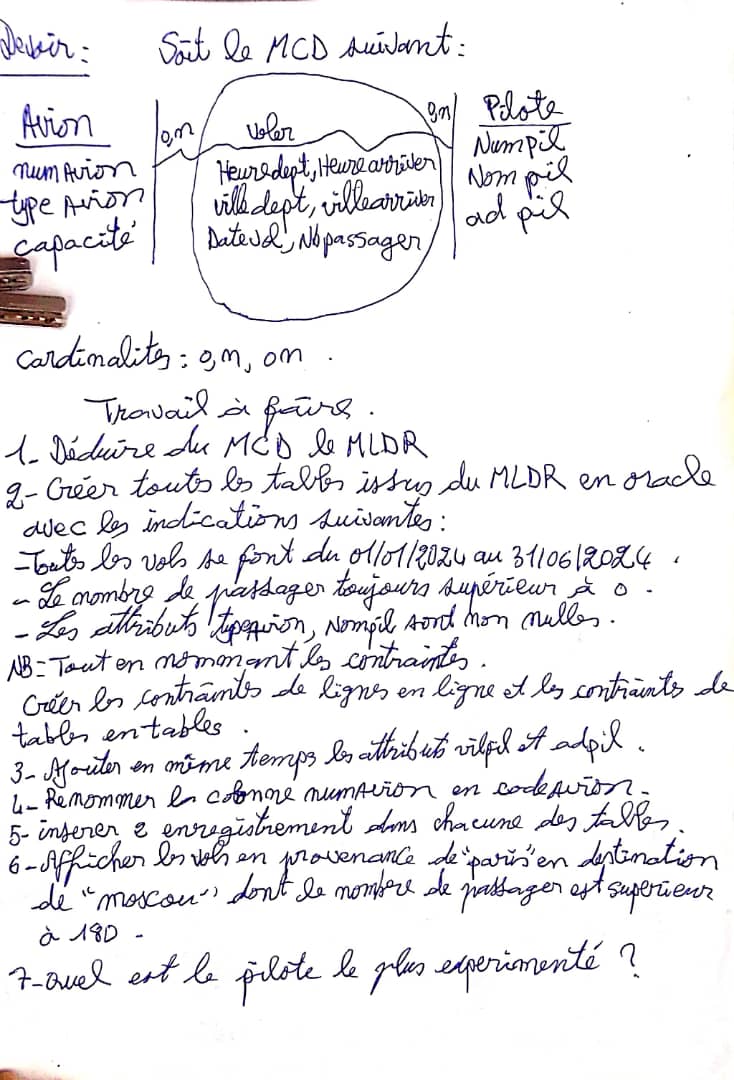 Devoir : Soit le MCD suivant :
Avion
numAvion
type Avion
capacité
0,n
Voler
Heuredept, Heurearriver
villedept, villearriver
DateVol, Nbpassager
0,n
Pilote
Numpil
Nompil
ad pil
Cardinalites : 0,n, 0n .
Travail à faire .
1- Déduire du MCD le MLDR
2- Créer touts les tables issus du MLDR en oracle
avec les indications suivantes :
-Toutes les vols se font du 01/01/2024 au 31/06/2024 .
- Le nombre de passager toujours supérieur à 0 .
- Les attributs typeavion, Nompil sont non nulles .
NB = Tout en nommant les contraintes .
Créer les contraintes de lignes en ligne et les contraintes de
tables en tables .
3- Ajouter en même temps les attributs vilpil et adpil .
4- Renommer la colonne numAvion en codeAvion -
5- inserer 2 enregistrement dans chacune des tables .
6- Afficher les vols en provenance de "paris" en destination
de "moscou", dont le nombre de passager est superieur
à 180 -
7- Quel est le pilote le plus experimenté ?